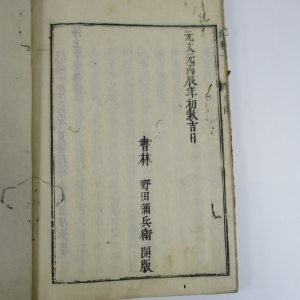 元文元丙辰年初秋吉日
書林 野田彌兵衛開版